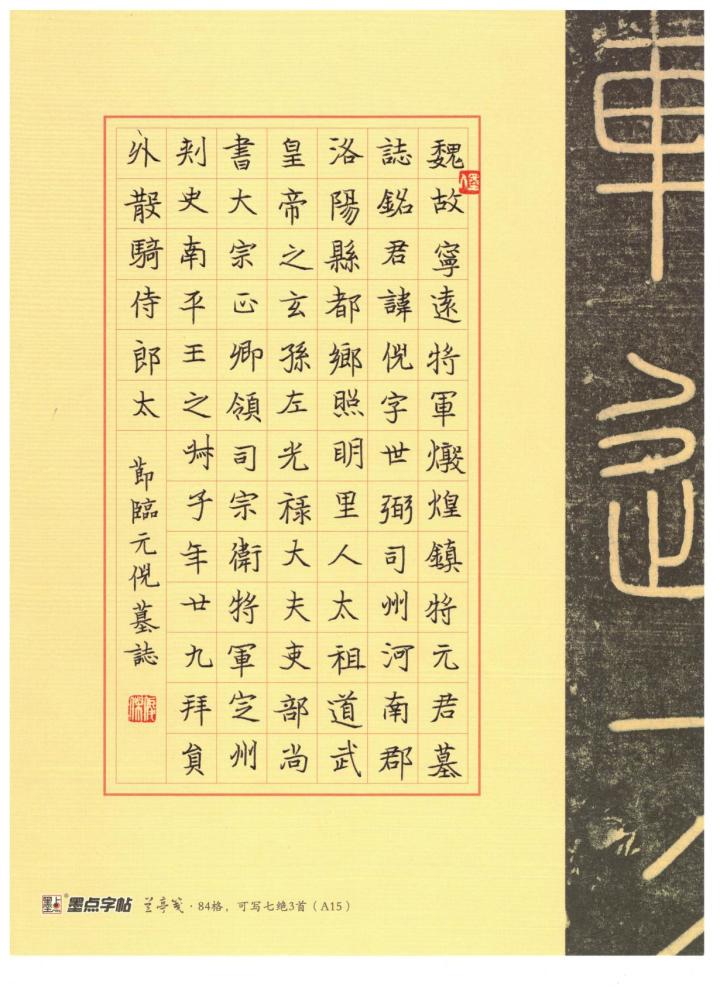 魏故寧遠將軍燉煌鎮將元君墓
誌銘君諱倪字世弼司州河南郡
洛陽縣都鄉照明里人太祖道武
皇帝之玄孫左光禄大夫吏部尚
書大宗正卿領司宗衛將軍定州
刾史南平王之叔子年廿九拜員
外散騎侍郎太
節臨元倪墓誌
墨点字帖 兰亭笺·84格，可写七绝3首（A15）